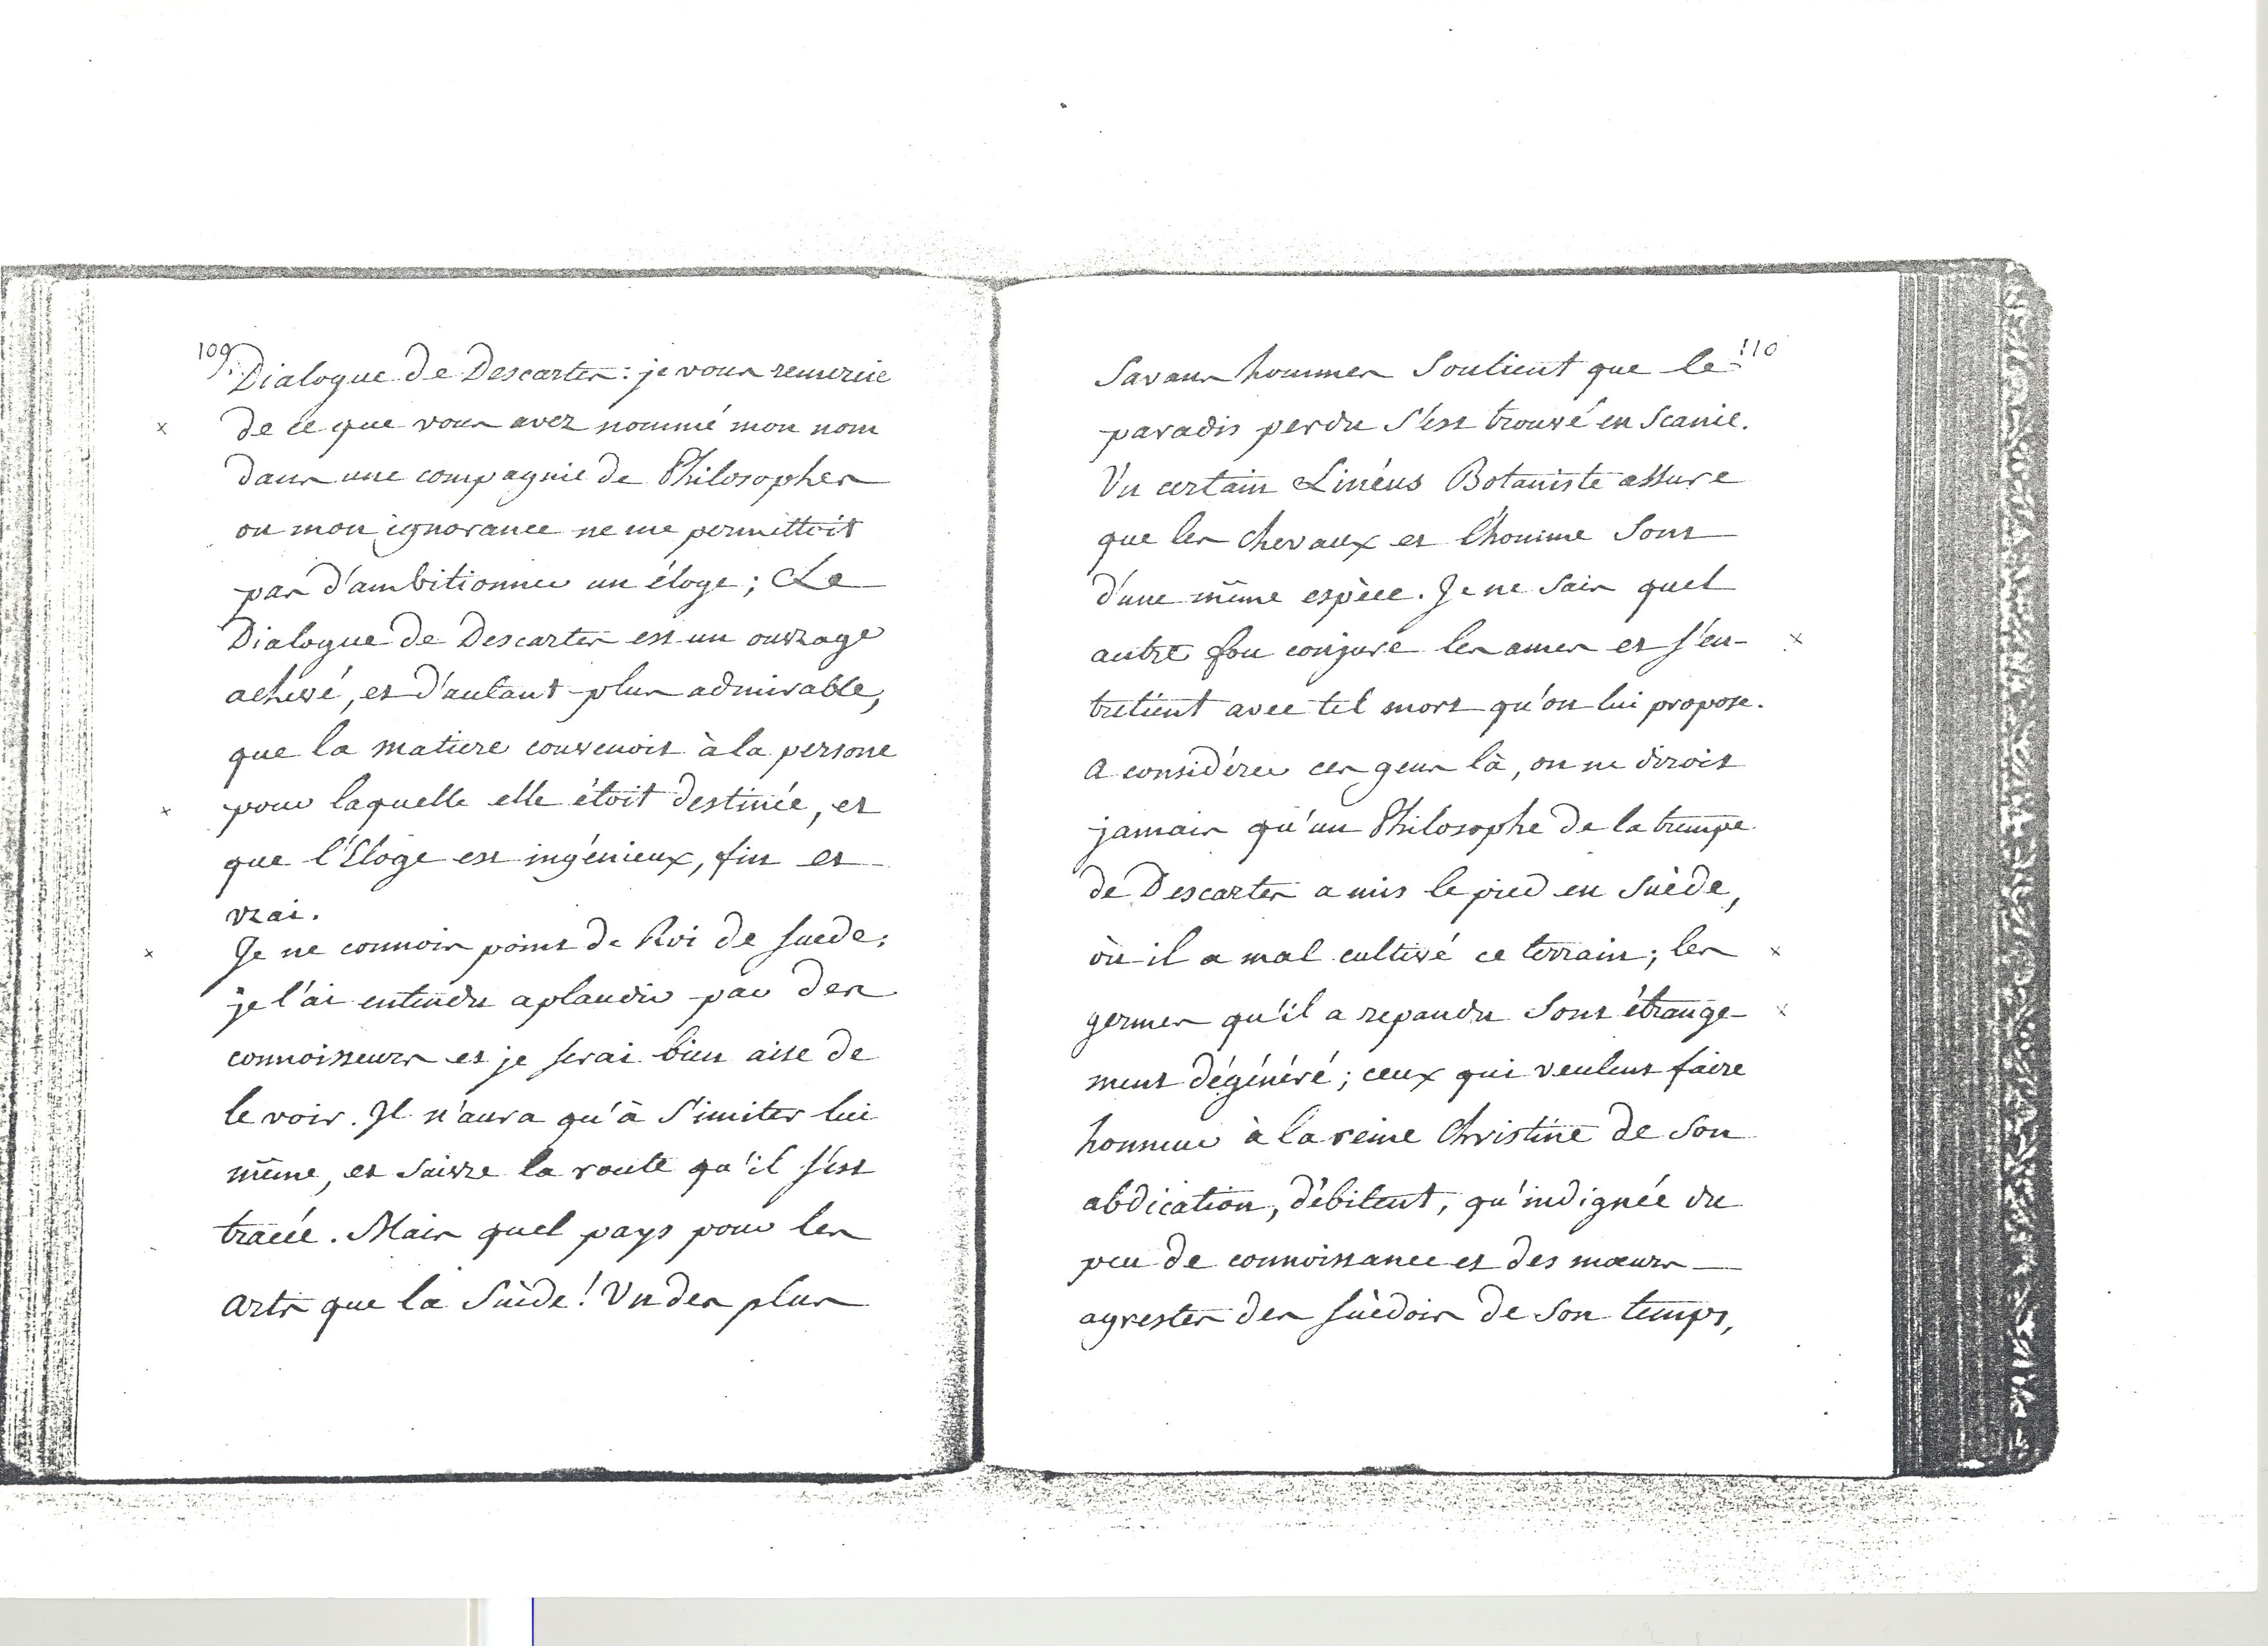 109.
Dialogue de Descartes: je vous remercie
de ce que vous avez nommé mon nom
dans une compagnie de Philosophes
ou mon ignorance ne me permettoit
pas d'ambitionner un éloge; Le
Dialogue de Descartes est un ouvrage
achevé, et d'autant plus admirable,
que la matiere convenoit à la persone
pour laquelle elle étoit destinée, et
que l'Eloge est ingénieux, fin et
vrai.
Je ne connois point de Roi de Suede;
je l'ai entendu aplaudir par des
connoisseurs et je serai bien aise de
le voir. Il n'aura qu'à s'imiter lui
même, et suivre la route qu'il s'est
tracée. Mais quel pays pour les
arts que la Suède! Un des plus
110
Savans hommes Soutient que le
paradis perdu s'est trouvé en Scanie.
Un certain Linéus Botaniste assure
que les chevaux et l'homme Sont
d'une même espèce. Je ne Sais quel
autre fou conjure les ames et s'en-
tretient avec tel mort qu'on lui propose.
a considérer ces gens là, on ne diroit
jamais qu'un Philosophe de la trempe
de Descartes a mis le pied en Suède,
où il a mal cultivé ce terrain; les
germes qu'il a repandu Sont étrange-
ment dégénéré; ceux qui veulent faire
honneur à la reine Christine de Son
abdication, débitent, qu'indignée du
peu de connoissance et des mœurs
agrestes des Suèdois de Son temps,